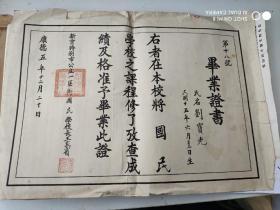 第十八號
畢業證書
氏名 劉寶光
民國十五年六月三日生
右者在本校將國民
學校之課程修了攷查成
績及格准予畢業此證
新京特別市公立一
國民學校長王
康德五年十二月二十日